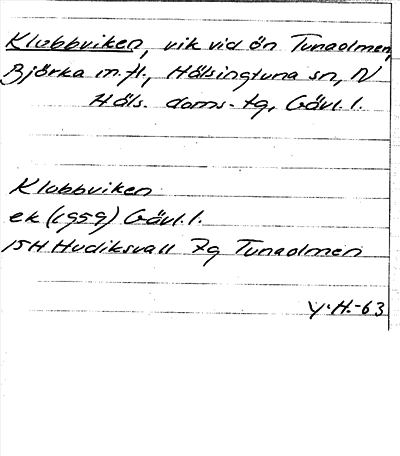 Klubbviken, vik vid ön Tunaolmen,
Björka m.fl., Hälsingtuna sn, N
Häls. doms.-tg, Gävl. l.
Klubbviken
ek (1959) Gävl. l.
15H Hudiksvall 7g Tunaolmen
Y.H.-63